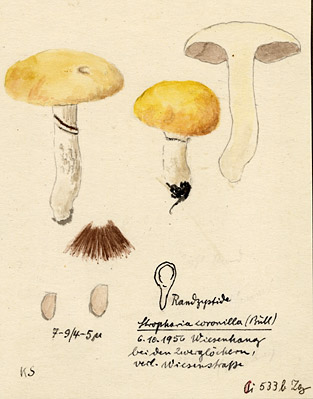 Randzystide
Stropharia coronilla (Bull)
7-9/4-5µ
6.10.1956 Wiesenhang
bei den Zwerglöchern,
verl. Wiesenstraße
KS
533,b Zg